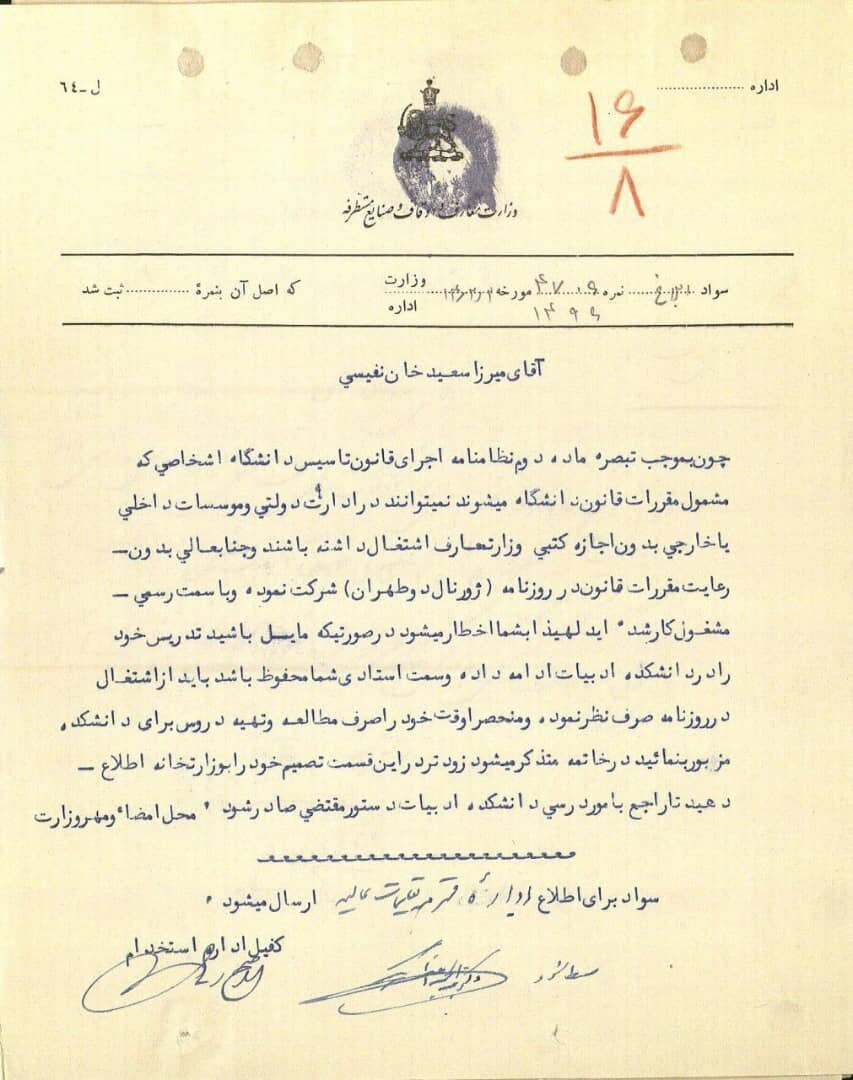 اداره
ل ـ ٦٤
۱۶
۸
وزارت معارف و اوقاف و صنایع مستظرفه
سواد نمره ۴۷۰۶ مورخه وزارت که اصل آن بنمرۀ ثبت شد
۱۴۹۶ اداره
آقای میرزا سعید خان نفیسي
چون بموجب تبصره ماده دوم نظامنامه اجرای قانون تاسیس دانشگاه اشخاصي که
مشمول مقررات قانون دانشگاه میشوند نمیتوانند در ادارات دولتي و موسسات داخلي
یا خارجي بدون اجازه کتبي وزارتمعارف اشتغال داشته باشند و جنابعالي بدون ـ
رعایت مقررات قانون در روزنامه (ژورنال دو طهران) شرکت نموده و با سمت رسمي ـ
مشغول کار شده اید لهیذا بشما اخطار میشود در صورتیکه مایسل باشید تدریس خود
را در دانشکده ادبیات ادامه داده وسمت استادی شما محفوظ باشد باید از اشتغال
در روزنامه صرف نظر نموده و منحصرا وقت خود را صرف مطالعه وتهیه دروس برای دانشکده
مزبور بنمائید در خاتمه متذکر میشود زودتر در این قسمت تصمیم خود را بوزارتخانه اطلاع ـ
دهید تا راجع بامور درسي دانشکده ادبیات دستور مقتضي صادر شود ٠ محل امضاء ومهر وزارت
سواد برای اطلاع ادارۀ محترم تعلیمات عالیه ارسال میشود ٠
کفیل اداره استخدام